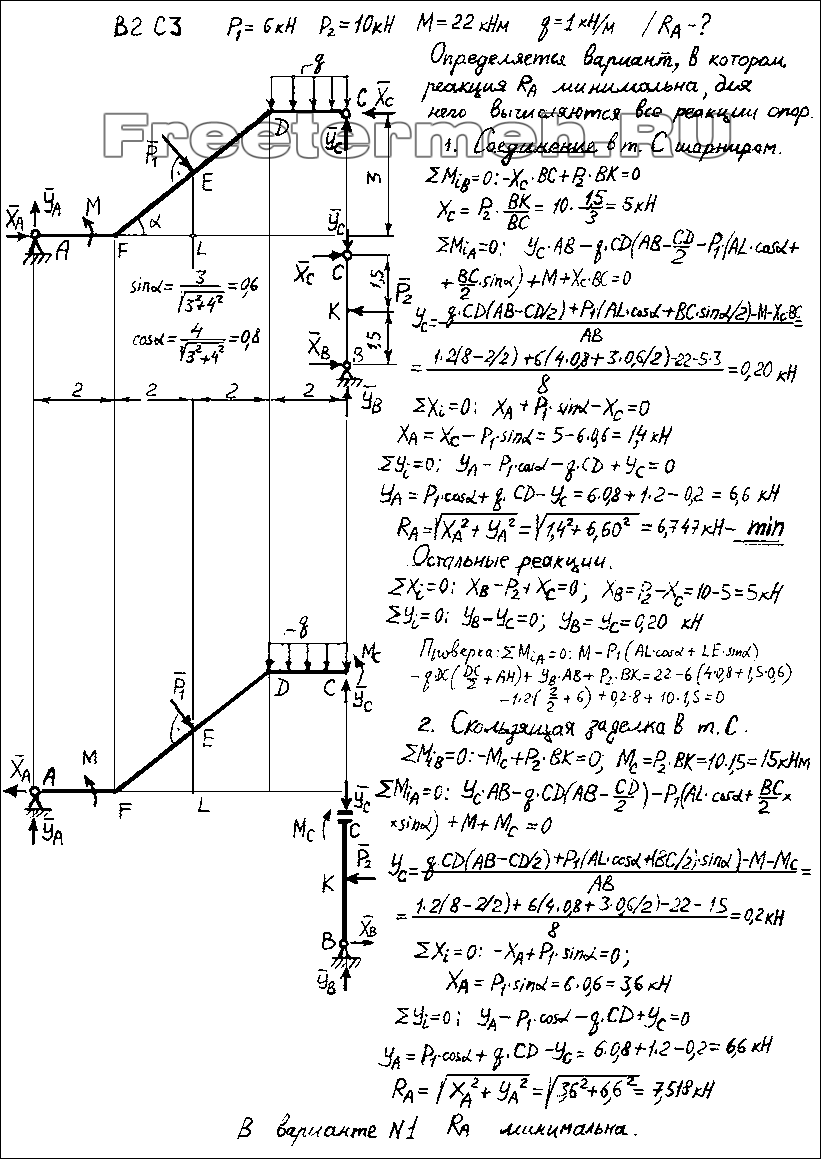 B2 C3 P₁ = 6 кН P₂ = 10 кН M = 22 кНм q = 1 кН/м / R_A - ?
Определяется вариант, в котором
реакция R_A минимальна, для
него вычисляются все реакции опор.
Freetermeh.RU
1. Соединение в т. C шарниром.
ΣM_iB = 0: -X_C·BC + P₂·BK = 0
X_C = P₂·BK/BC = 10·1,5/3 = 5 кН
ΣM_iA = 0: Y_C·AB - q·CD(AB - CD/2 - P₁(AL·cosα +
+ BC/2·sinα) + M + X_C·BC = 0
Y_C = q·CD(AB-CD/2) + P₁(AL·cosα + BC·sinα/2) - M - X_C·BC / AB =
= 1·2(8-2/2) + 6(4·0,8 + 3·0,6/2) - 22 - 5·3 / 8 = 0,20 кН
ΣX_i = 0: X_A + P₁·sinα - X_C = 0
X_A = X_C - P₁·sinα = 5 - 6·0,6 = 1,4 кН
ΣY_i = 0: Y_A - P₁·cosα - q·CD + Y_C = 0
Y_A = P₁·cosα + q·CD - Y_C = 6·0,8 + 1·2 - 0,2 = 6,6 кН
R_A = √(X_A² + Y_A²) = √(1,4² + 6,60²) = 6,747 кН - min
Остальные реакции.
ΣX_i = 0: X_B - P₂ + X_C = 0; X_B = P₂ - X_C = 10 - 5 = 5 кН
ΣY_i = 0: Y_B - Y_C = 0; Y_B = Y_C = 0,20 кН
Проверка: ΣM_iA = 0: M - P₁(AL·cosα + LE·sinα)
- q·DC(DC/2 + AH) + Y_B·AB + P₂·BK = 22 - 6(4·0,8 + 1,5·0,6)
- 1·2(2/2 + 6) + 0,2·8 + 10·1,5 = 0
2. Скользящая заделка в т. C.
ΣM_iB = 0: -M_C + P₂·BK = 0; M_C = P₂·BK = 10·1,5 = 15 кНм
ΣM_iA = 0: Y_C·AB - q·CD(AB - CD/2) - P₁(AL·cosα + BC/2 ×
× sinα) + M + M_C = 0
Y_C = q·CD(AB-CD/2) + P₁(AL·cosα + (BC/2)·sinα) - M - M_C / AB =
= 1·2(8-2/2) + 6(4·0,8 + 3·0,6/2) - 22 - 15 / 8 = 0,2 кН
ΣX_i = 0: -X_A + P₁·sinα = 0;
X_A = P₁·sinα = 6·0,6 = 3,6 кН
ΣY_i = 0; Y_A - P₁·cosα - q·CD + Y_C = 0
Y_A = P₁·cosα + q·CD - Y_C = 6·0,8 + 1·2 - 0,2 = 6,6 кН
R_A = √(X_A² + Y_A²) = √(3,6² + 6,6²) = 7,518 кН
В варианте N1 R_A минимальна.
q
C X_C
D
Y_C
P₁
E
3
Y_A
M
X_A
A F α L
Y_C
X_C C
1,5
P₂
K
1,5
X_B B
Y_B
sinα = 3/√(3²+4²) = 0,6
cosα = 4/√(3²+4²) = 0,8
2 2 2 2
q
M_C
D C
Y_C
P₁
E
X_A A M
F L
Y_A
Y_C
M_C C
P₂
K
B X_B
Y_B